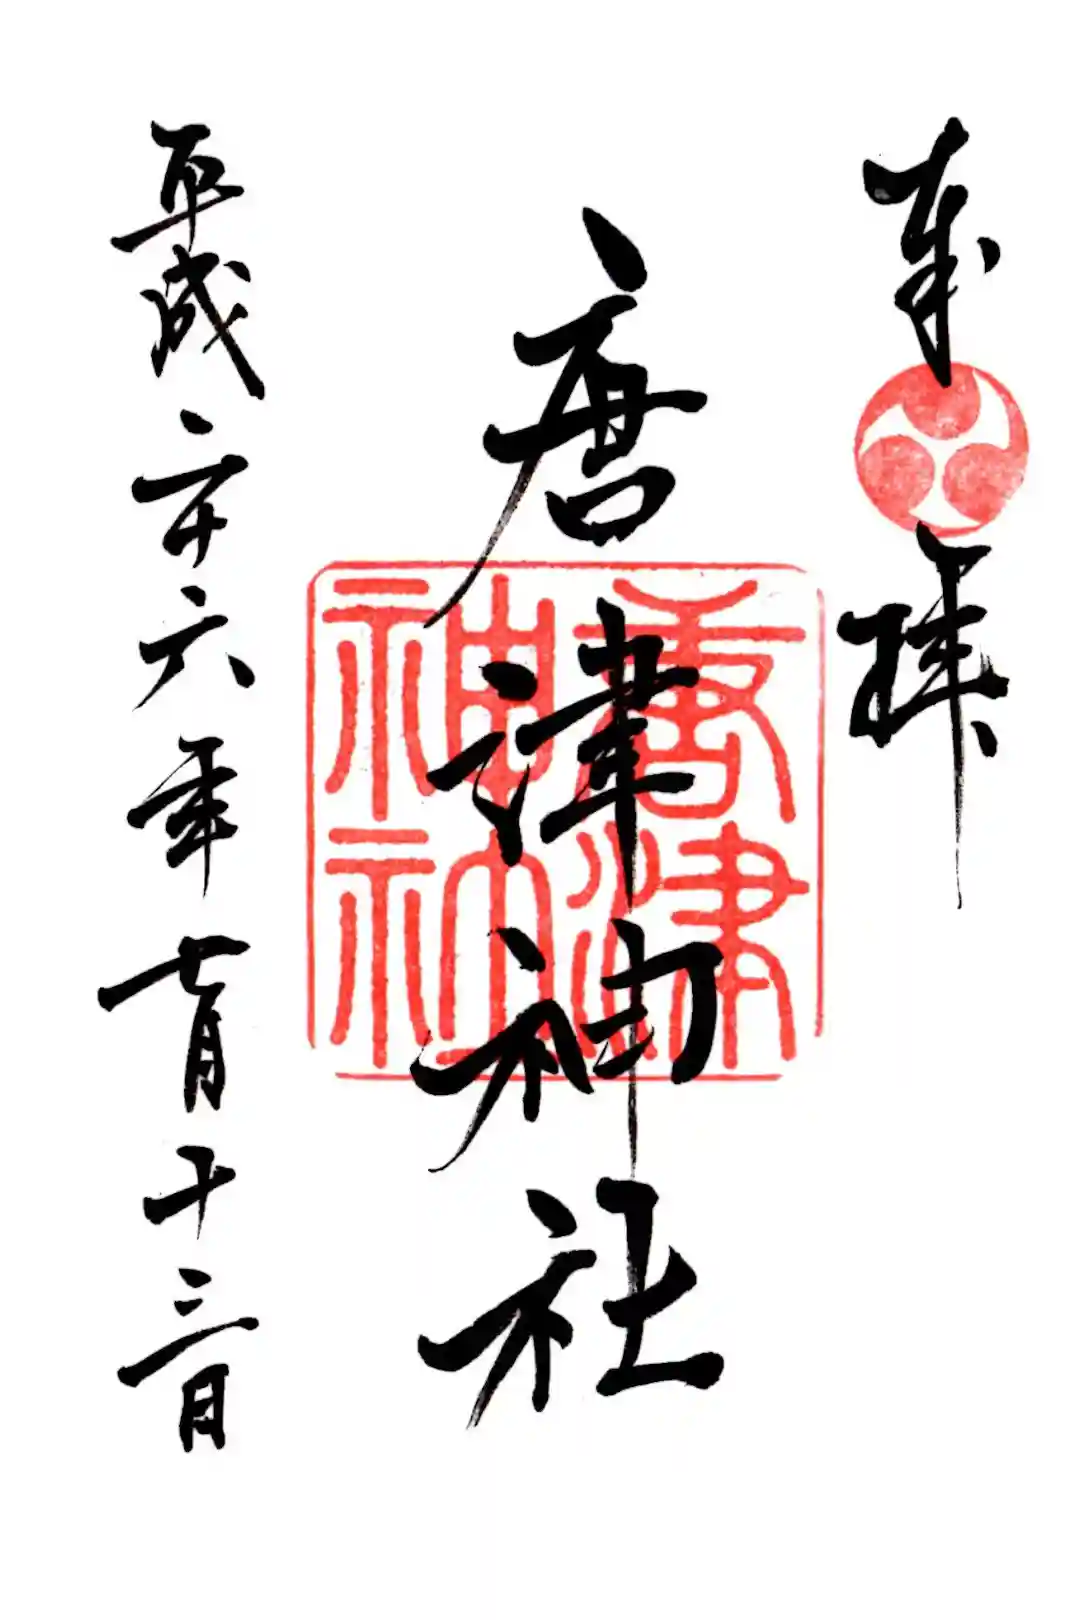 奉拝
唐津神社
唐津
神社
平成二十六年七月十三日